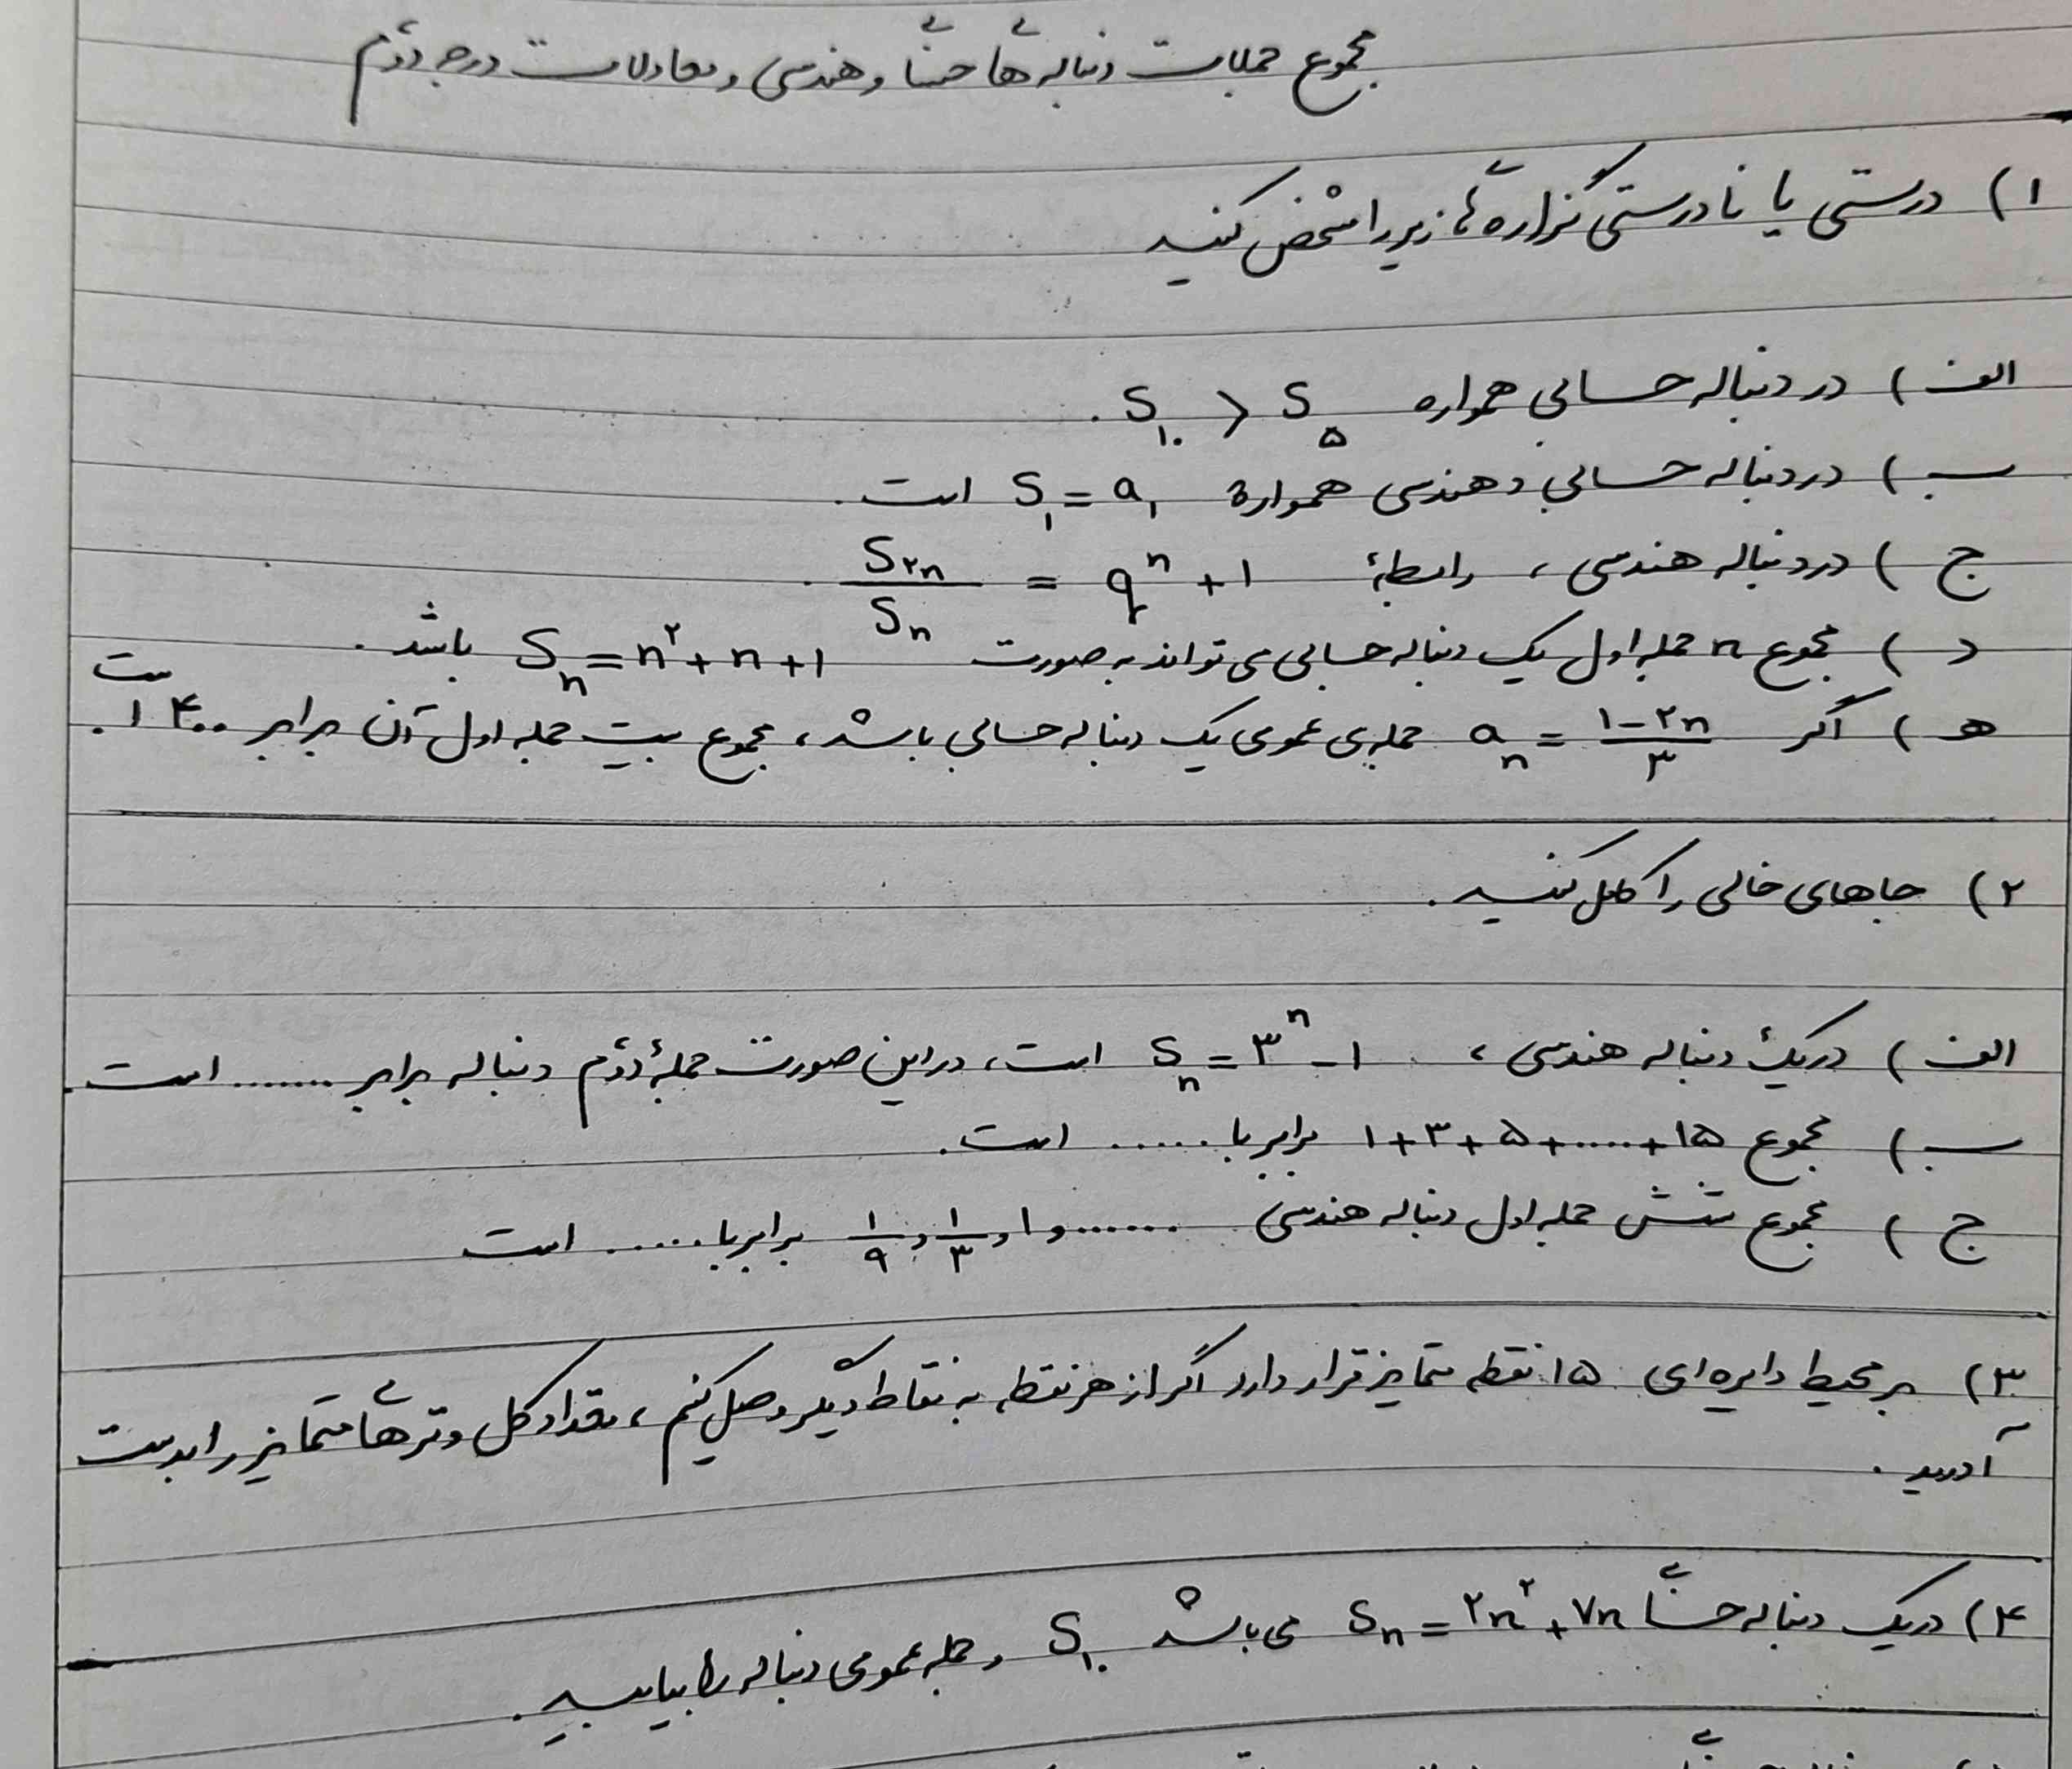 مجموع جملات دنباله های حسابی و هندسی و معادلات درجه دوم
۱) درستی یا نادرستی گزاره های زیر را مشخص کنید
الف) در دنباله حسابی همواره S₁۰ > S۵ .
ب) در دنباله حسابی و هندسی همواره S₁ = a₁ است.
ج) در دنباله هندسی، رابطهٔ S۲n / Sn = qⁿ + ۱ .
د) مجموع n جمله اول یک دنباله حسابی می تواند به صورت Sn = n² + n + ۱ باشد.
ه) اگر an = (۱ - ۲n) / ۳ جمله ی عمومی یک دنباله حسابی باشد، مجموع بیست جمله اول آن برابر ۴۰۰ است.
۲) جاهای خالی را کامل کنید.
الف) در یک دنباله هندسی، Sn = ۳ⁿ - ۱ است، در این صورت جملهٔ دوم دنباله برابر ....... است.
ب) مجموع ۱+۳+۵+.....+۱۵ برابر با ...... است.
ج) مجموع شش جمله اول دنباله هندسی ۱/۹ و ۱/۳ و ۱ و ....... برابر با ...... است
۳) بر محیط دایره ای ۱۵ نقطه متمایز قرار دارد اگر از هر نقطه به نقاط دیگر وصل کنیم، تعداد کل وترهای متمایز را بدست
آورید.
۴) در یک دنباله حسابی Sn = ۲n² + ۷n می باشد S₁۰ و جمله عمومی دنباله را بیابید.